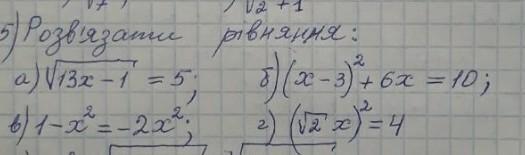 5) Розв'язати рівняння:
а) √13x-1 = 5; б) (x-3)² + 6x = 10;
в) 1-x² = -2x²; г) (√2 x)² = 4